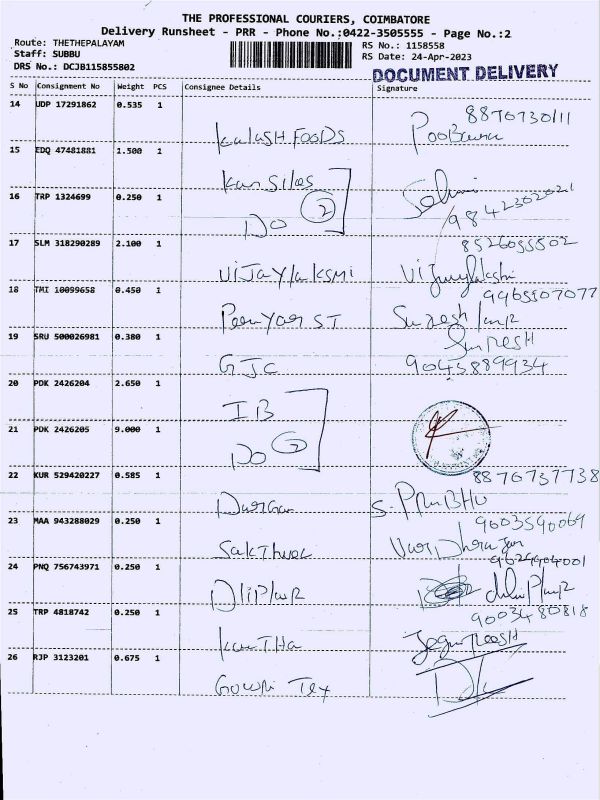 THE PROFESSIONAL COURIERS, COIMBATORE
Delivery Runsheet - PRR - Phone No.:0422-3505555 - Page No.:2
Route: THETHEPALAYAM
RS No.: 1158558
Staff: SUBBU
RS Date: 24-Apr-2023
DRS No.: DCJB115855802
DOCUMENT DELIVERY
S No Consignment No Weight PCS Consignee Details Signature
14 UDP 17291862 0.535 1
8870730111
Kalash Foods
15 EDQ 47481881 1.500 1
16 TRP 1324699 0.250 1
2
9842302021
Do
17 SLM 318290289 2.100 1
8526055502
Vijaylaksmi Vijaylakshi
18 TMI 10099658 0.450 1
9965507077
Periyar ST Suresh
19 SRU 500026981 0.380 1
Suresh
GJC 9045889934
20 PDK 2426204 2.650 1
IB
21 PDK 2426205 9.000 1
Do 2
22 KUR 529420227 0.585 1
8870737738
Durga S. PRABHU
23 MAA 943288029 0.250 1
9003590069
24 PNQ 756743971 0.250 1
9629904001
25 TRP 4818742 0.250 1
9003480818
KanTHa
26 RJP 3123201 0.675 1
Gowri Tex